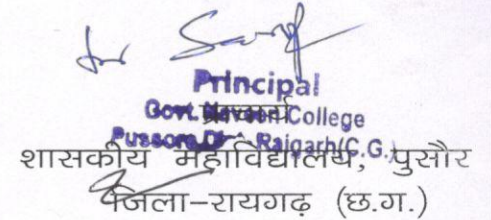 Principal
प्राचार्य
Govt. Naveen College
Pussore, Dist- Raigarh(C.G.)
शासकीय महाविद्यालय, पुसौर
जिला-रायगढ़ (छ.ग.)